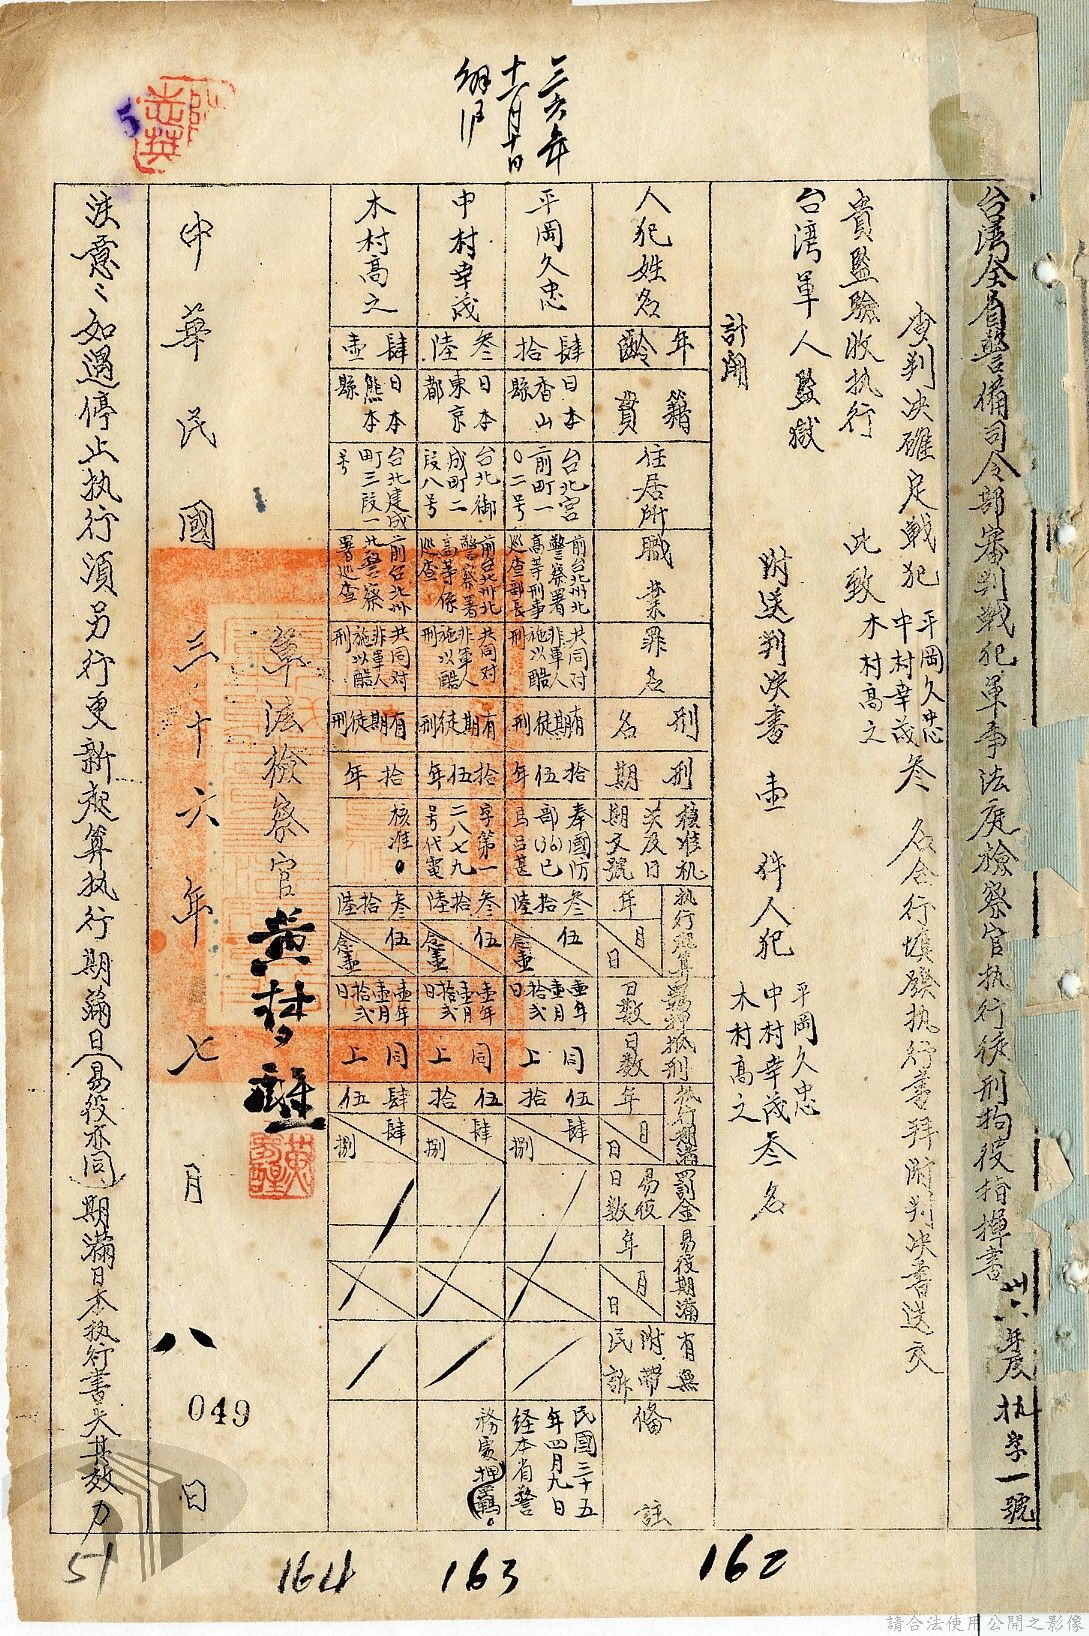 台湾全省警備司令部審判戦犯軍事法庭檢察官执行徒刑拘役指揮書
卅六年度执字一號
查判决確定戦犯
平岡久忠
中村幸茂
木村高之
叁名合行填發执行書拜附判决書送交
貴監驗收执行
此致
台湾軍人監獄
附送判决書壹件人犯
平岡久忠
中村幸茂
木村高之
叁名
計開
人犯姓名
年齡
籍貫
住居所
職業
罪名
刑名
刑期
核准机
关及日
期文號
执行起算
年
月
日
羁押日数
抵刑日数
执行期滿
年
月
日
罰金易役日数
易役期滿
年
月
日
有無附帶民訴
備註
平岡久忠
肆拾
日本香山縣
台北宮前町一〇二号
前台北州北警察署高等刑事巡查部長
共同对非軍人施以酷刑
有期徒刑
拾伍年
奉國防部(36)巳
叁拾陸
伍
念壹
壹年壹月拾弍日
同上
伍拾
肆
捌
民國三十五年四月九日経本省警
中村幸茂
叁陸
日本東京都
台北御成町二段八号
前台北州北警察署高等係巡查
共同对非軍人施以酷刑
有期徒刑
拾伍年
字第一二八七九号代電
叁拾陸
伍
念壹
壹年壹月拾弍日
同上
伍拾
肆
捌
務處押羈。
木村高之
肆壹
日本熊本縣
台北建成町三段一号
前台北州北警察署巡查
共同对非軍人施以酷刑
有期徒刑
拾年
核准。
叁拾陸
伍
念壹
壹年壹月拾弍日
同上
肆伍
肆
捌
軍法檢察官
中華民國三十六年七月八日
注意：如遇停止执行須另行更新起算执行期滿日(易役亦同)期滿日本执行書失其效力
三六年
十一月十日
5
049
51
164
163
162
請合法使用公開之影像